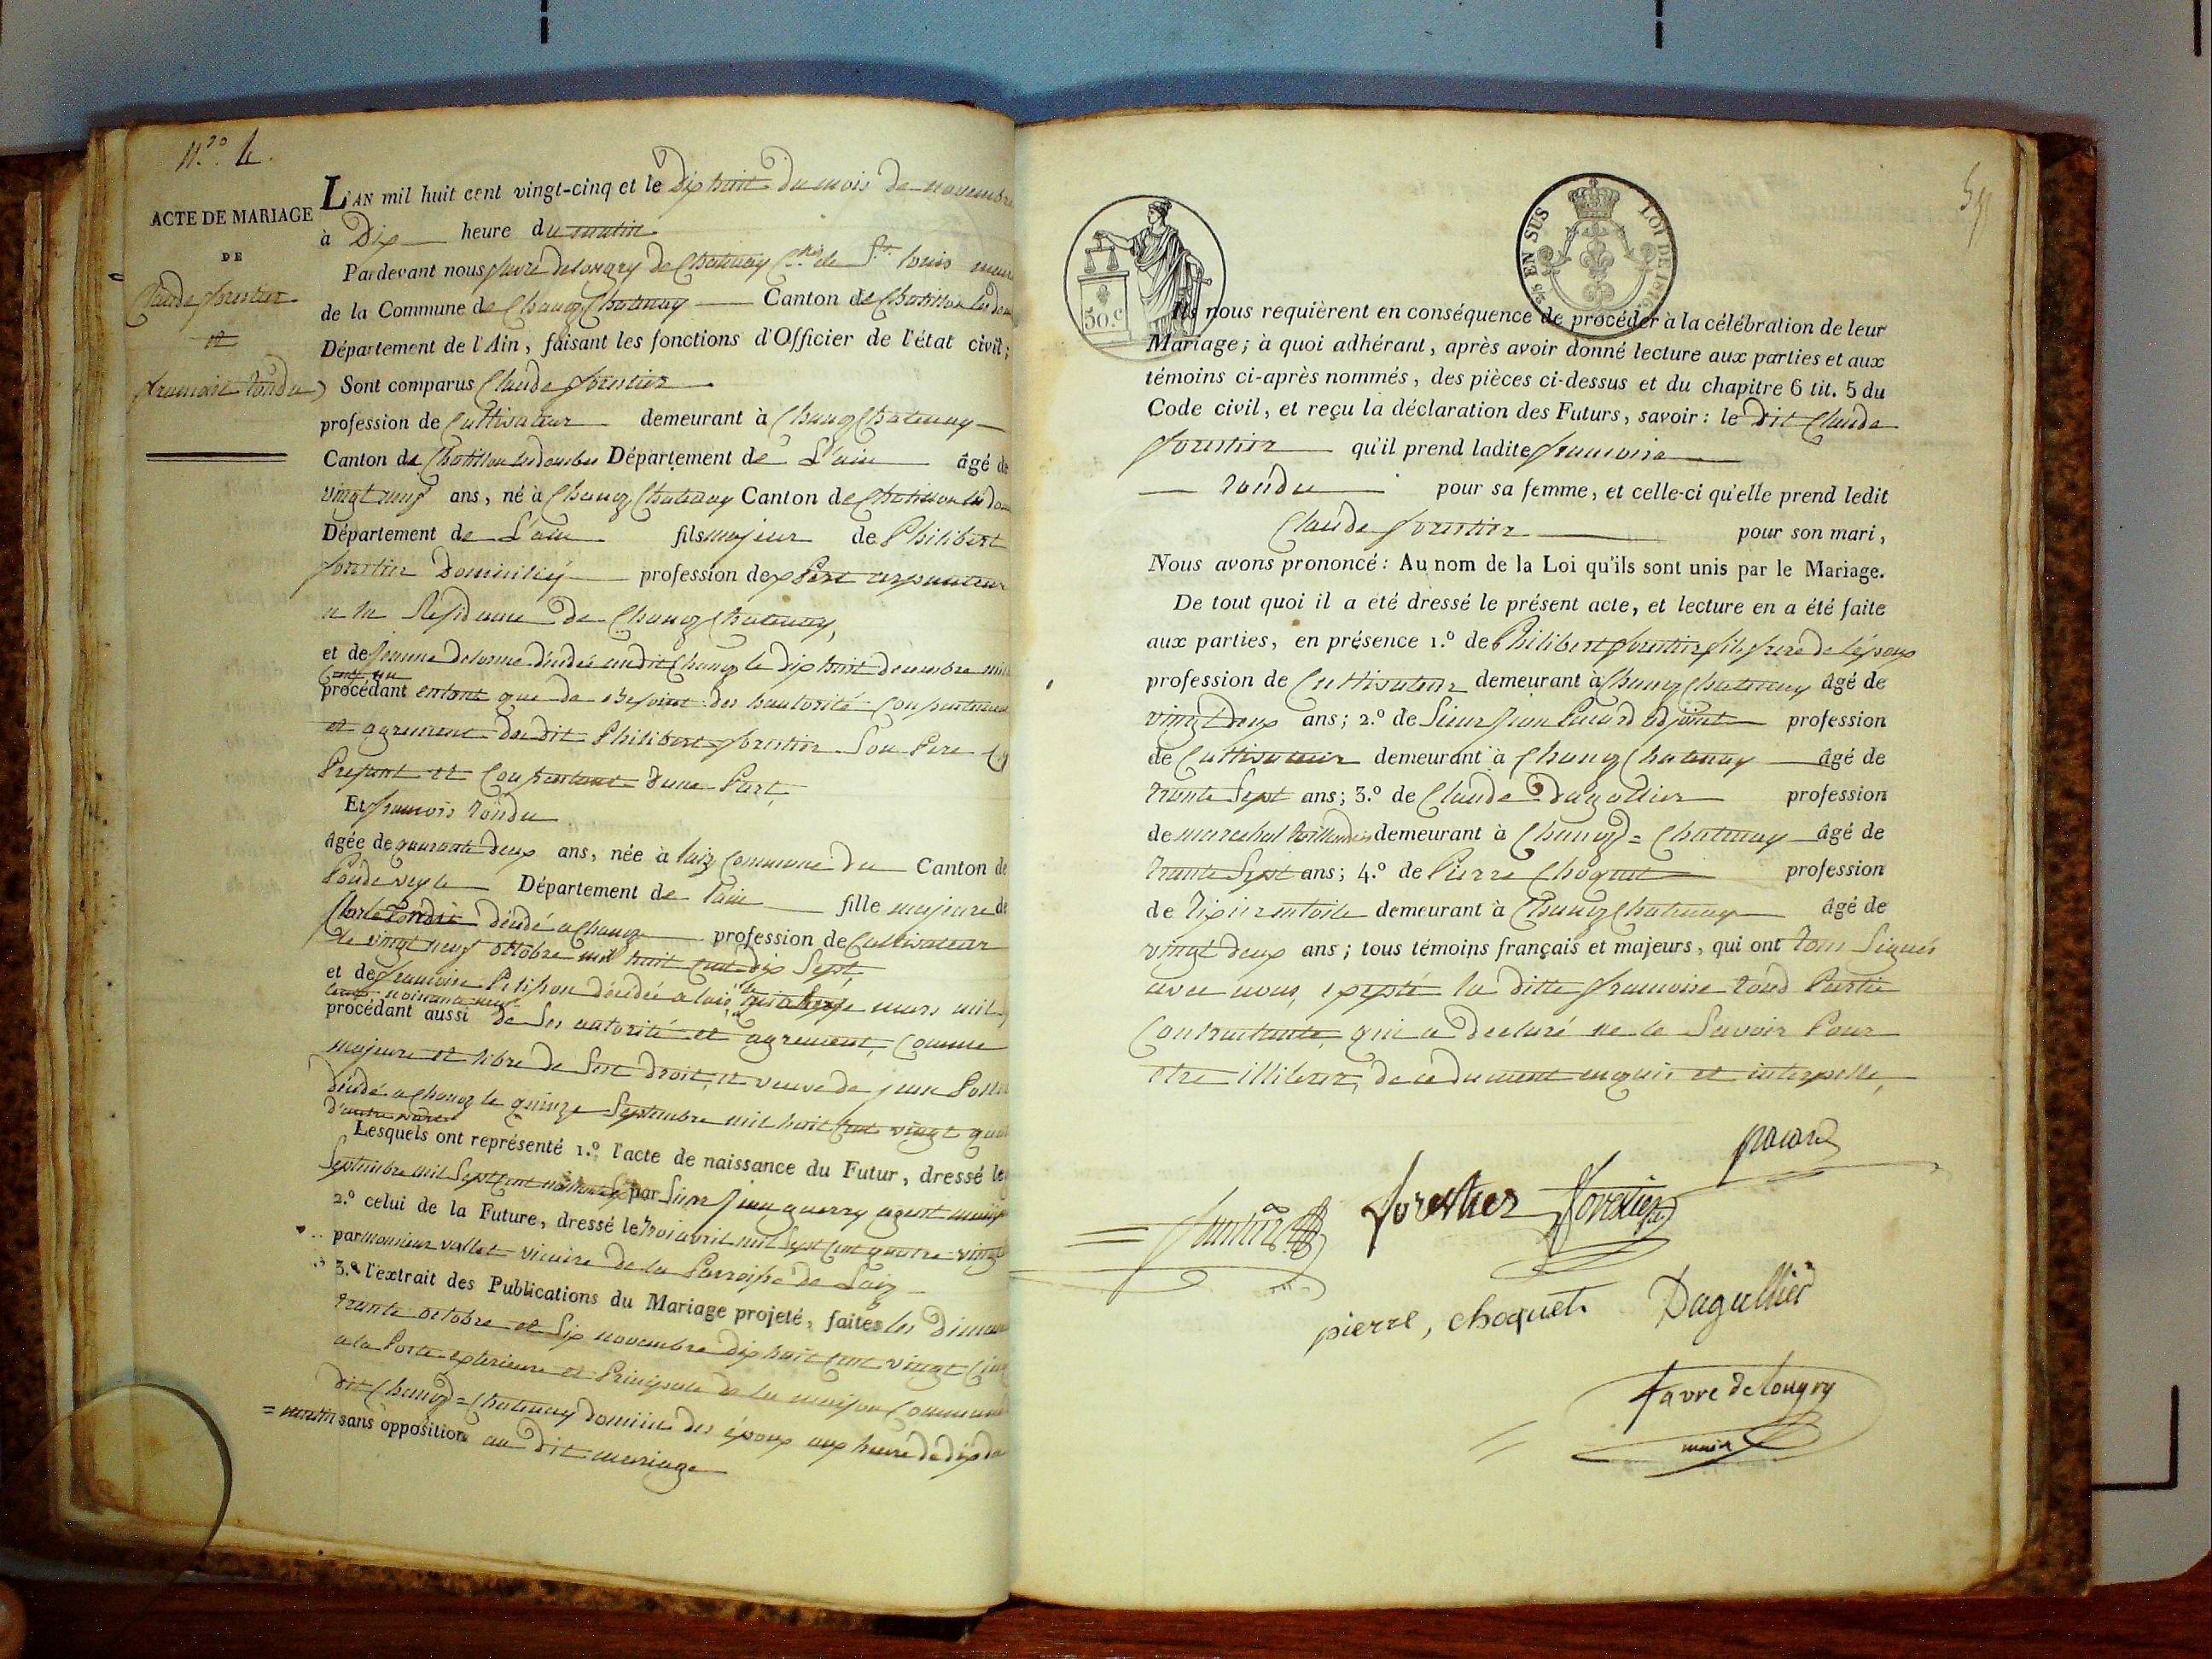 N.ro 4.
ACTE DE MARIAGE
DE
Claude forestier
et
francoise Rondu
L'AN mil huit cent vingt-cinq et le Dix huit du mois de novembre
à Dix heure du matin
Pardevant nous favre delongry de Chatenay Ch.er de St. louis maire
de la Commune de Chanoz Chatenay Canton de Chatillon les dom
Département de l'Ain, faisant les fonctions d'Officier de l'état civil;
Sont comparus Claude forestier
profession de Cultivateur demeurant à Chanoz Chatenay
Canton de Chatillon les dombes Département de L'ain âgé de
vingt neuf ans, né à Chanoz Chatenay Canton de Chatillon les dom
Département de L'ain fils majeur de Philibert
forestier Domicilié profession de Expert arpenteur
a la Residence de Chanoz Chatenay,
et de Jeanne delorme décédée au dit Chanoz le dix huit decembre mil
procédant entant que de besoint des hautorité Consentement
et agrement du dit Philibert forestier Son Pere Cy
Present et Consentant d'une Part,
Et francois Rondu
âgée de quarante deux ans, née à laiz Commune du Canton de
Pondeveyle Département de l'ain fille majeure de
décédé a Chanoz profession de Cultivateur
le vingt neuf octobre mil huit cent dix Sept,
et de francoise Petison décédée a laiz mars mil
procédant aussi de Ses autorité et agrement, Comme
majeure et libre de Ses droit, et veuve de jean
décédé a Chanoz le quinze Septembre mil huit cent vingt
d'autre Part
Lesquels ont représenté 1.º l'acte de naissance du Futur, dressé le
Septembre mil Sept cent par Sieur Jean guerry agent
2.º celui de la Future, dressé le trois avril mil Sept cent quatre vingt
par monsieur vallet vicaire de la Parroisse de Laiz
3.º l'extrait des Publications du Mariage projeté, faites les Diman
trante octobre et Six novembre dix huit cent vingt Cinq
a la Porte exterieure et Principale de la maison Commune
dit Chanoz = Chatenay domicile des époux aux heure de dix du
= matin sans opposition au dit mariage
50.c
5/2 EN SUS
LOI DE 1816.
Ils nous requièrent en conséquence de procéder à la célébration de leur
Mariage; à quoi adhérant, après avoir donné lecture aux parties et aux
témoins ci-après nommés, des pièces ci-dessus et du chapitre 6 tit. 5 du
Code civil, et reçu la déclaration des Futurs, savoir: le dit Claude
forestier qu'il prend ladite francoise
Rondu pour sa femme, et celle-ci qu'elle prend ledit
Claude forestier pour son mari,
Nous avons prononcé: Au nom de la Loi qu'ils sont unis par le Mariage.
De tout quoi il a été dressé le présent acte, et lecture en a été faite
aux parties, en présence 1.º de Philibert forestier fils frere de l'époux
profession de Cultivateur demeurant à Chanoz Chatenay âgé de
vingt deux ans; 2.º de Sieur Jean Pacard adjoint profession
de Cultivateur demeurant à Chanoz Chatenay âgé de
trante Sept ans; 3.º de Claude Dagallier profession
de marechal taillandier demeurant à Chanoz = Chatenay âgé de
trante Sept ans; 4.º de Pierre Choquet profession
de Tixier en toile demeurant à Chanoz Chatenay âgé de
vingt deux ans; tous témoins français et majeurs, qui ont tous Signés
avec nous, exepté la ditte francoise Rond Partie
Contractante, qui a declaré ne le Savoir Pour
etre illiterer, de ce dument enquis et interpellé,
pacard
forestier forestier
pierre, choquet. Dagallier
favre delongry
maire